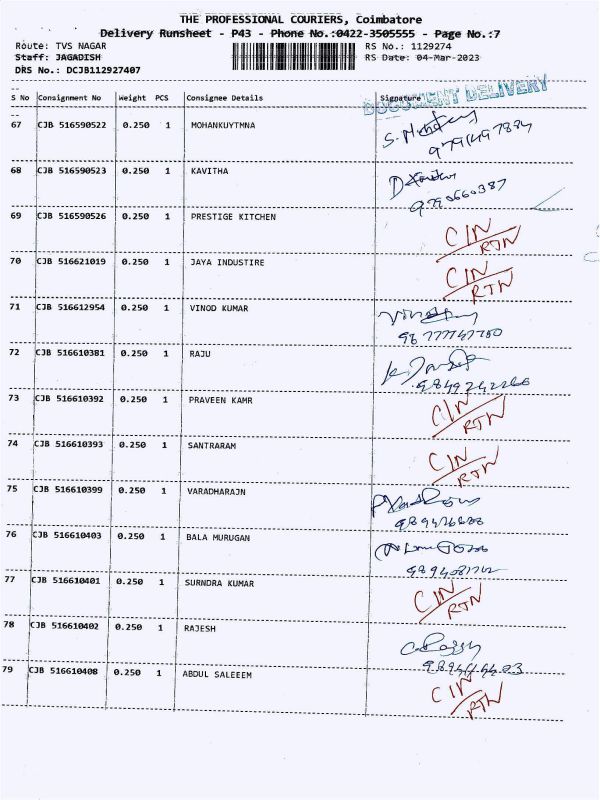 THE PROFESSIONAL COURIERS, Coimbatore
Delivery Runsheet - P43 - Phone No.:0422-3505555 - Page No.:7
Route: TVS NAGAR RS No.: 1129274
Staff: JAGADISH RS Date: 04-Mar-2023
DRS No.: DCJB112927407
--
S No Consignment No Weight PCS Consignee Details Signature
DOCUMENT DELIVERY
--
67 CJB 516590522 0.250 1 MOHANKUYTMNA
68 CJB 516590523 0.250 1 KAVITHA
9790660387
69 CJB 516590526 0.250 1 PRESTIGE KITCHEN CIN/RTN
70 CJB 516621019 0.250 1 JAYA INDUSTIRE CIN/RTN
71 CJB 516612954 0.250 1 VINOD KUMAR
72 CJB 516610381 0.250 1 RAJU
73 CJB 516610392 0.250 1 PRAVEEN KAMR CIN/RTN
74 CJB 516610393 0.250 1 SANTRARAM CIN/RTN
75 CJB 516610399 0.250 1 VARADHARAJN
76 CJB 516610403 0.250 1 BALA MURUGAN
77 CJB 516610401 0.250 1 SURNDRA KUMAR CIN/RTN
78 CJB 516610402 0.250 1 RAJESH
79 CJB 516610408 0.250 1 ABDUL SALEEEM CIN/RTN